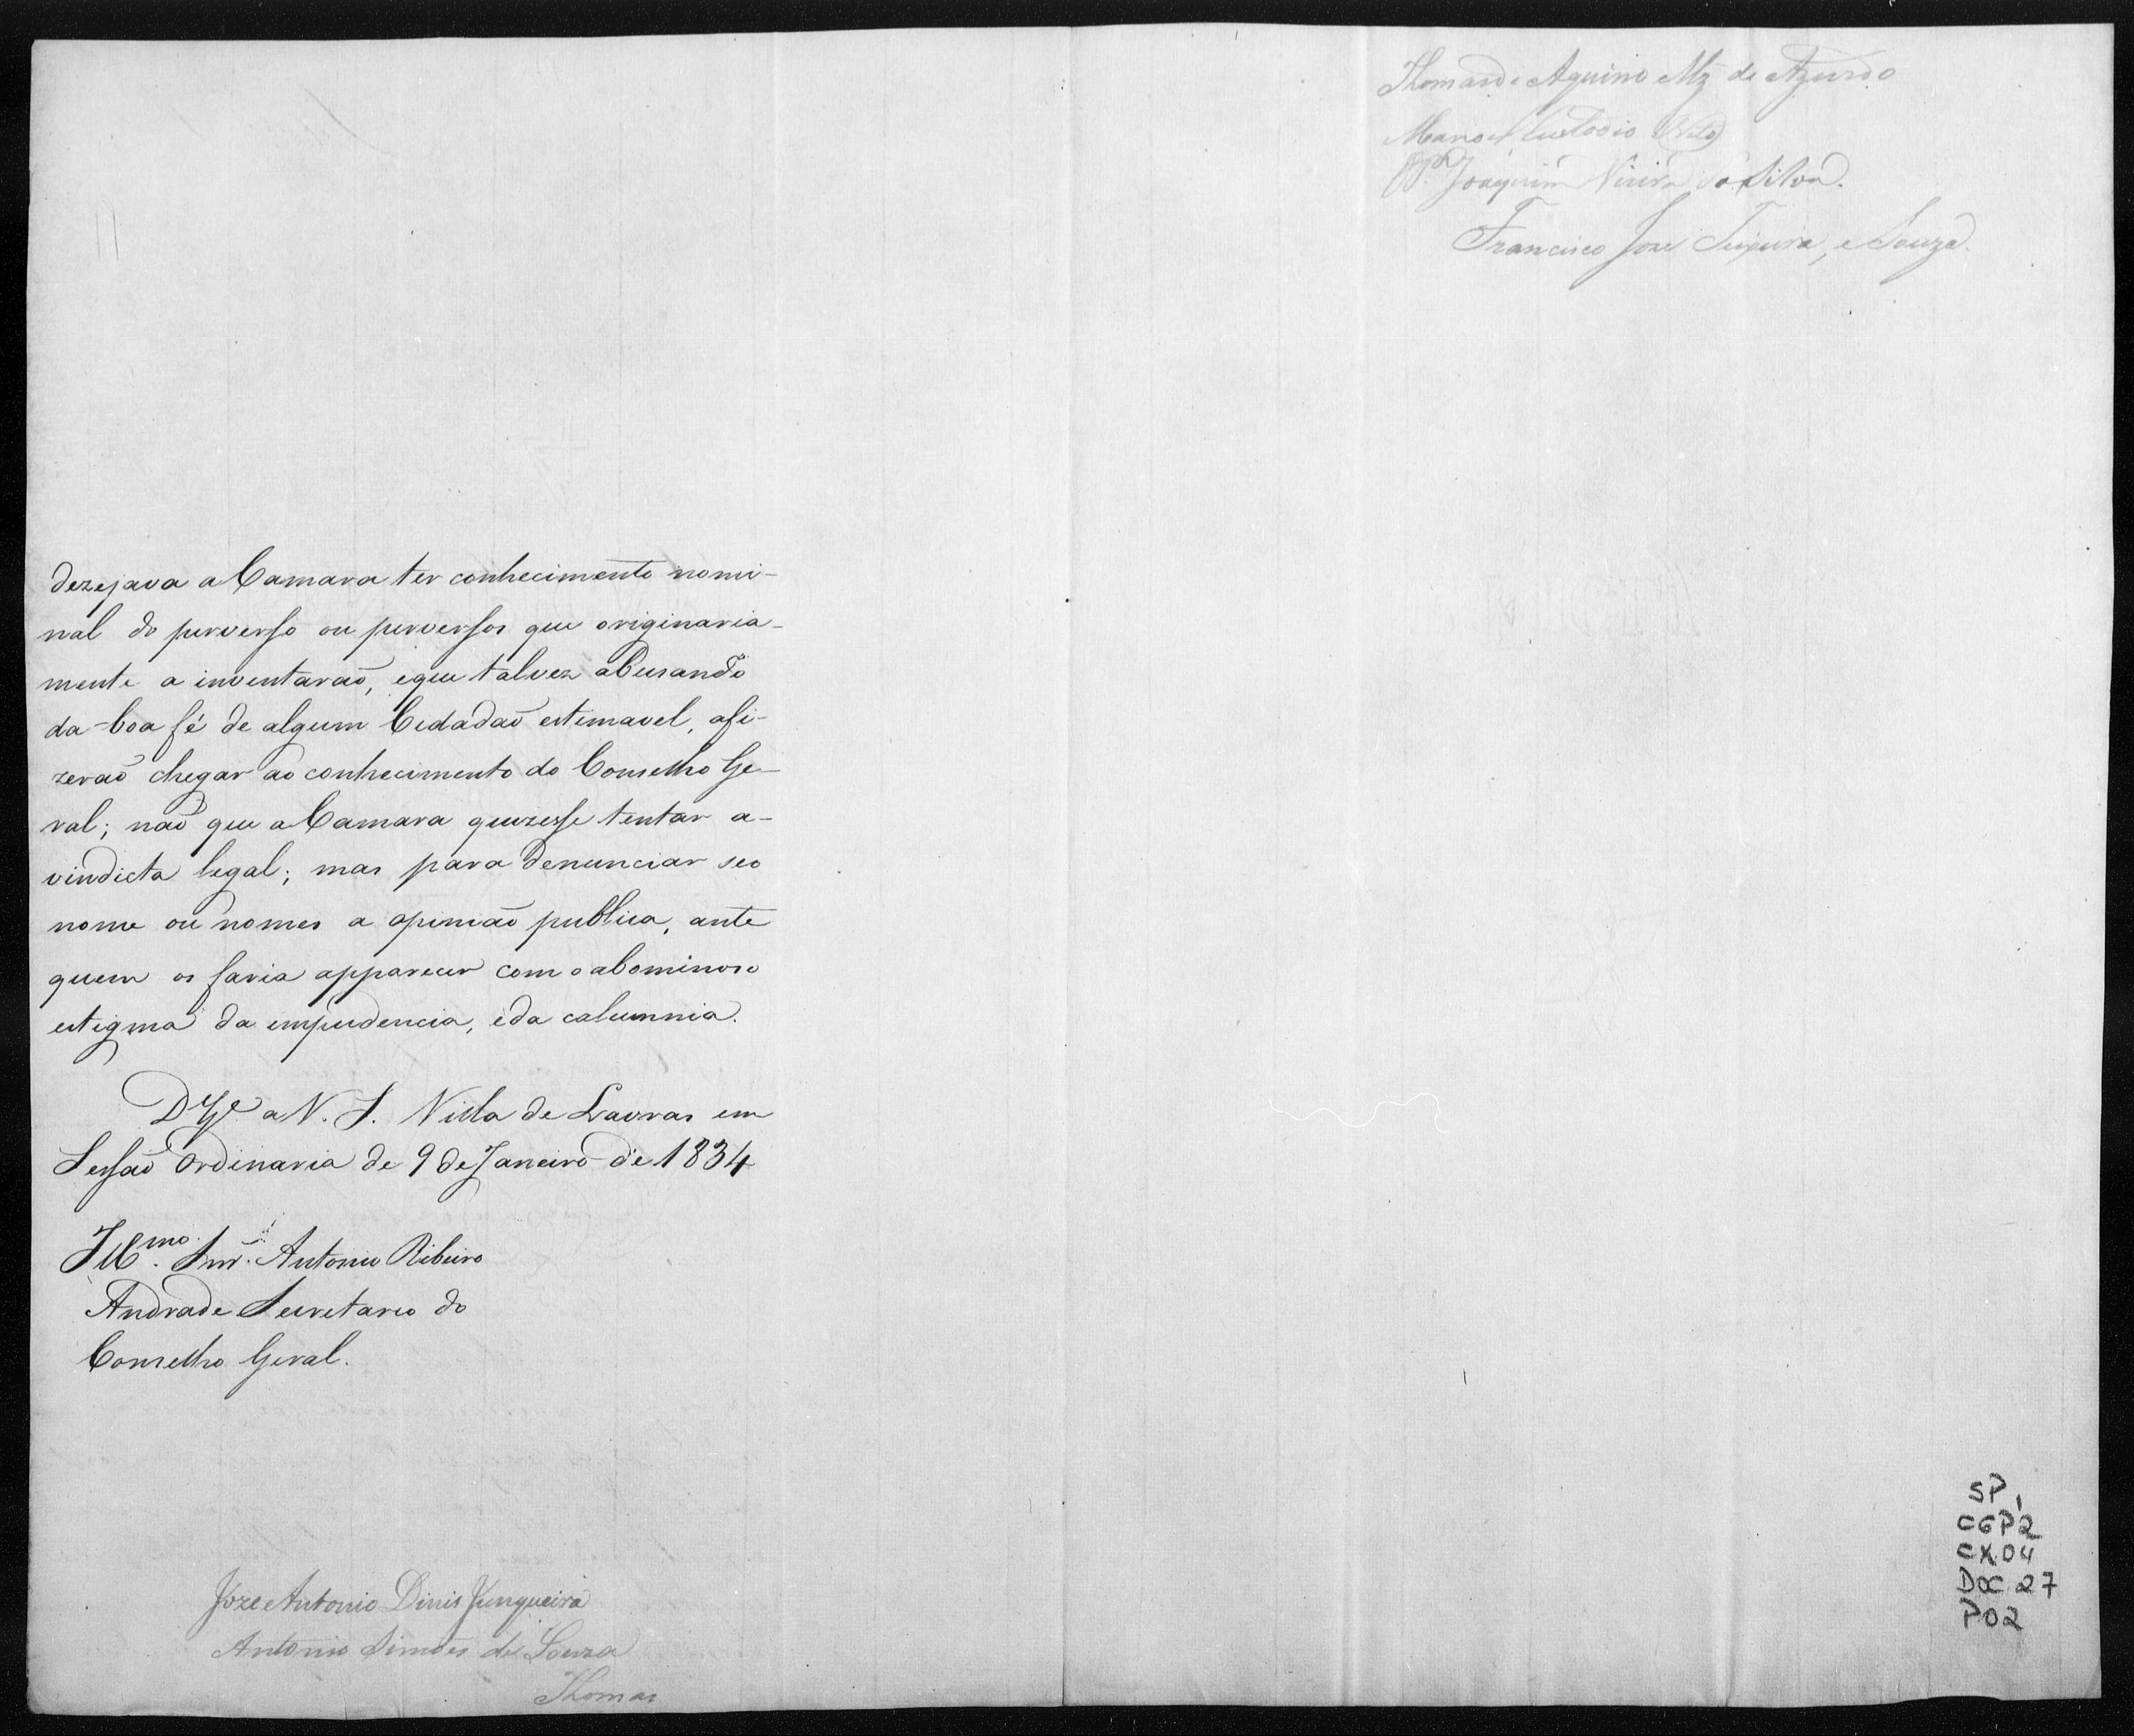 dezejava a Camara ter conhecimento nomi-
nal do perverso ou perversos que originaria-
mente a inventaraõ, eque talvez abusando
da boa fé de algum Cidadaõ estimavel, afi-
zeraõ chegar ao conhecimento do Conselho Ge-
ral; naõ que a Camara quizesse tentar a-
vindicta legal; mas para denunciar seo
nome ou nomes a opiniaõ publica, ante
quem os faria apparecer com o abominoso
estigma da impudencia, eda calumnia.
D.s G.e a V. S. Villa de Lavras em
Sessaõ Ordinaria de 9 de Janeiro de 1834
Ill.mo Snr. Antonio Ribeiro
Andrade Secretario do
Conselho Geral.
Joze Antonio Dinis Junqueira
Antonio Simões de Souza
Thomas
Thomas de Aquino Mz de Azevdo
Manoel Custodio Neto
Joaquim Vieira da Silva.
Francisco Joze Teixeira, e Souza.
SP,
CGP2
CX04
DOC 27
P02